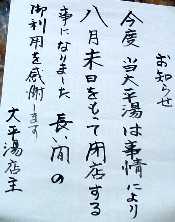 お知らせ
今度 当大平湯は事情により
八月末日をもって閉店する
事になりました 長い間の
御利用を感謝します
大平湯店主